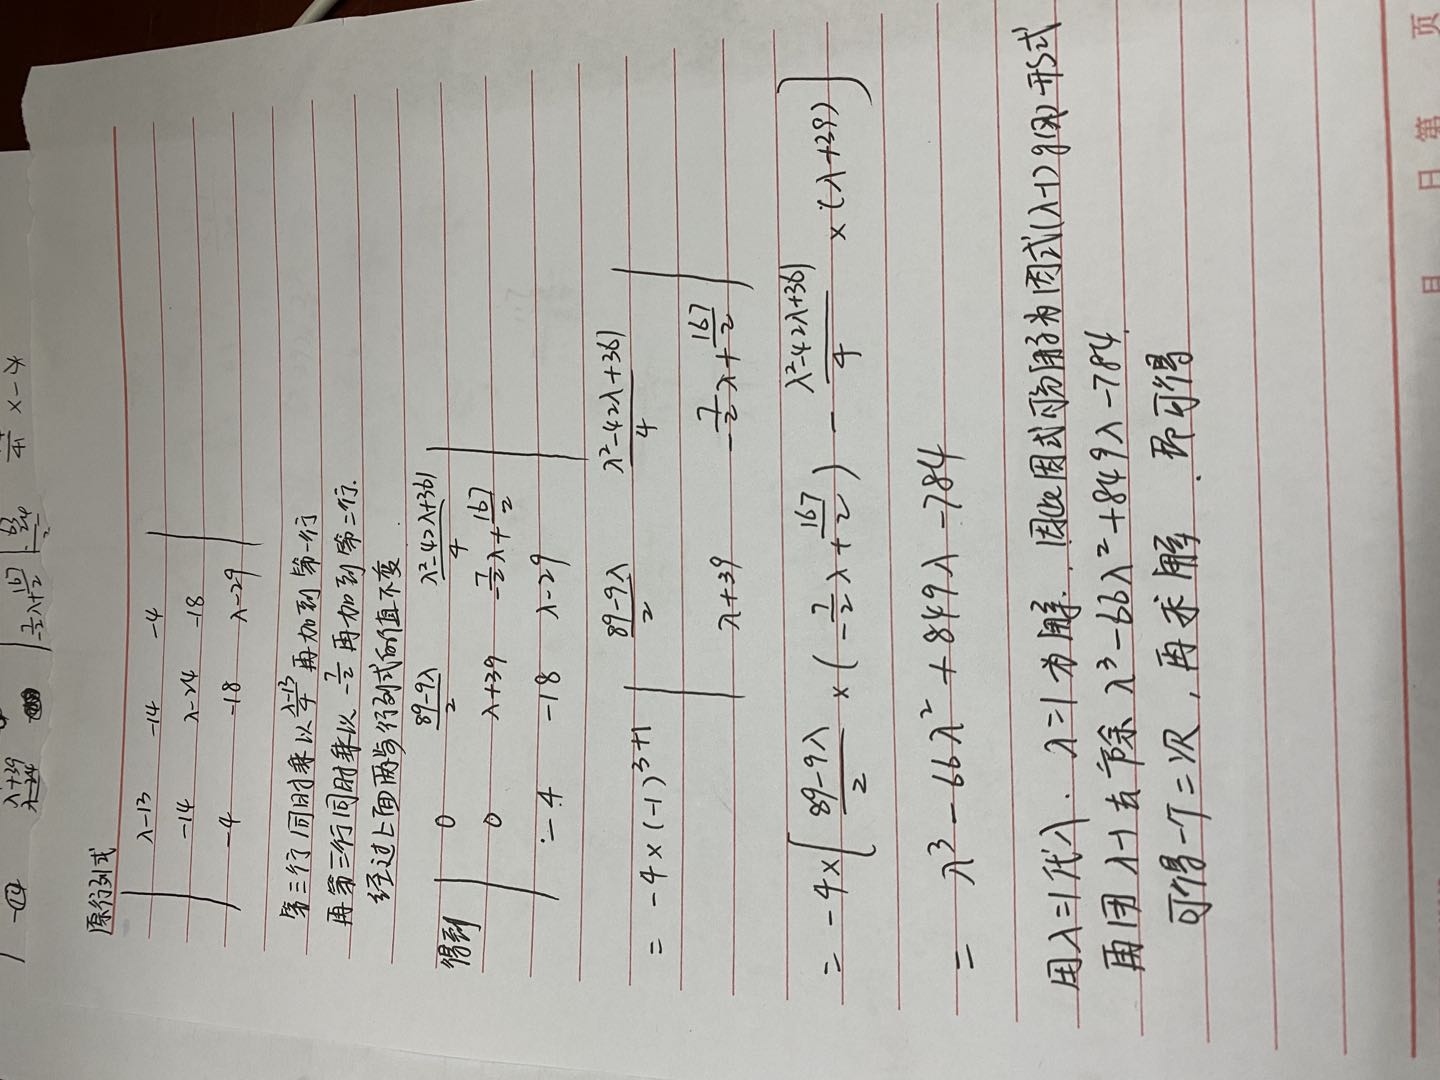 原行列式
λ-13 -14 -4
-14 λ-24 -18
-4 -18 λ-29
第三行同时乘以 (λ-13)/4 再加到第一行
再第三行同时乘以 -7/2 再加到第二行.
经过上面两步行列式的值不变
得到
0 (89-9λ)/2 (λ²-42λ+361)/4
0 λ+39 -7/2λ+167/2
-4 -18 λ-29
= -4×(-1)³⁺¹ | (89-9λ)/2 (λ²-42λ+361)/4
λ+39 -7/2λ+167/2 |
= -4×[(89-9λ)/2 ×(-7/2λ+167/2) - (λ²-42λ+361)/4 ×(λ+39)]
= λ³-66λ²+849λ-784
用λ=1代入. λ=1为解. 因此因式可分解为因式(λ-1)g(λ)形式
再用 λ-1去除 λ³-66λ²+849λ-784
可得一个二次, 再求解. 即可得
月 日 第 页
λ+39
-7/2λ+167/2
×-4